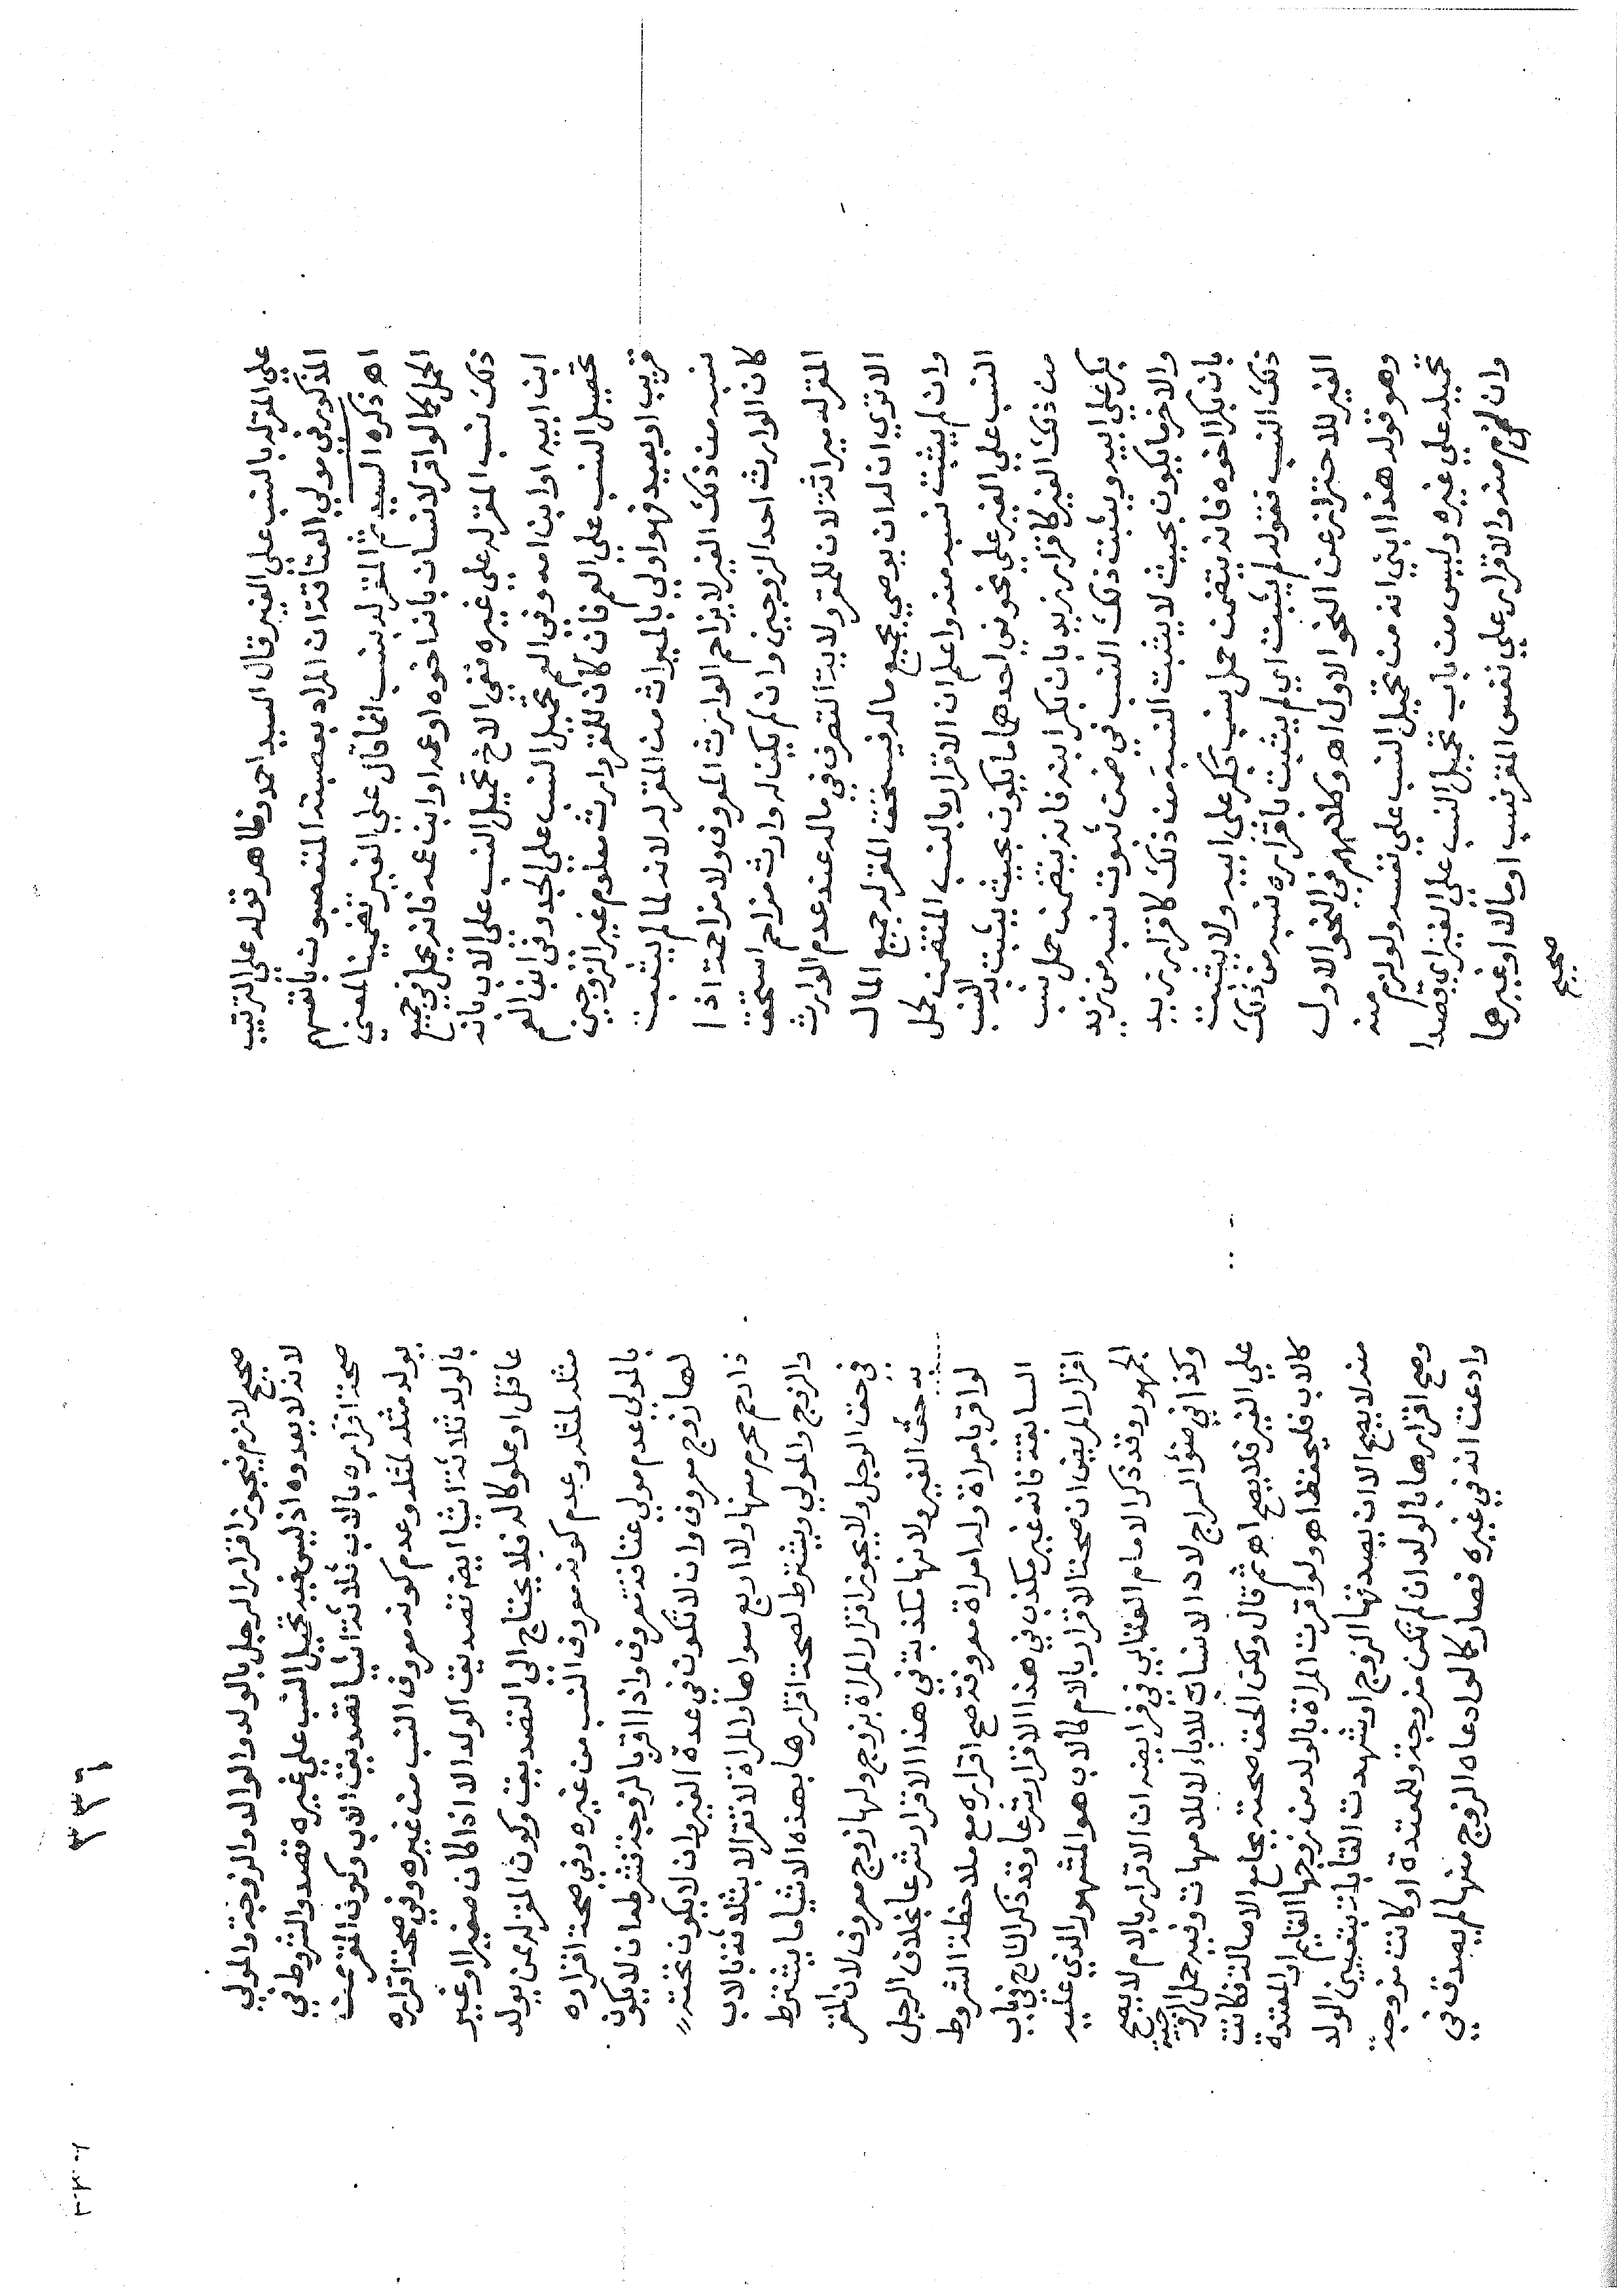 علي المقر له بالنسب علي الغير قال السيد احمد وظاهر قوله علي الترتيب
المذكور في مولي العتاقة ان المراد بعصبته المتعصبون بانفسهم
اه ذكره السيد ثم المقر له بنسب انما قال علي الغير تضمينا لمعني
الحمل كما لو اقر لانسان بانه اخوه او عمه او ابن عمه فانه يحمل في جميع
ذلك نسب المقر له علي غيره ففي الاخ تحميل النسب علي الاب بانه
ابن ابيه او ابن امه وفي العم تحميل النسب علي الجد وفي ابن العم
تحميل النسب علي العم فان كان للمقر وارث معلوم غير الزوجين
قريب او بعيد فهو اولي بالميراث من المقر له لانه لما لم يثبت
نسبه من ذلك الغير لا يزاحم الوارث المعروف ولا مزاحمة اذا
كان الوارث احد الزوجين وان لم يكن له وارث مزاحم استحق
المقر له ميراثه لان للمقر ولاية التصرف في ماله عند عدم الوارث
الا تري ان له ان يوصي بجميع ماله فيستحق المقر له جميع المال
وان لم يثبت نسبه منه واعلم ان الاقرار بالنسب المتضمن لحمل
النسب علي الغير علي نحوين احدهما يكون بحيث يثبت به النسب
من ذلك الغير كاقرار زيد بان بكرا ابنه فانه يتضمن حمل نسب
بكر علي ابيه ويثبت ذلك النسب في ضمن ثبوت نسبه من زيد
والاخر ما يكون بحيث لا يثبت النسب من ذلك كاقرار زيد
بان بكرا اخوه فانه يتضمن حمل نسب بكر علي ابيه ولا يثبت
ذلك النسب فقوله لم يثبت اي لم يثبت باقراره نسبه من ذلك
الغير للاحتراز عن النحو الاول اه وكلامهم في النحو الاول
وهو قوله هذا ابني انه من تحميل النسب علي نفسه ولو لزم منه
تحميله علي غيره وليس من باب تحميل النسب علي الغير اي قصدا
وان لزم منه والاقرار علي نفس المقر نسبا او مالا او غيرهما
صحيح
٣٣٦
صحيح لازم فيجوز اقرار الرجل بالولد والوالد والزوجة والمولي
لانه لا يعدوه اذ ليس فيه تحميل النسب علي غيره قصدا والشروط في
صحة اقراره بالاب ثلاثة اشيا تصديق الاب وكون المقر ممن
يولد مثله لمثله وعدم كونه معروف النسب من غيره وفي صحة اقراره
بالولد ثلاثة اشيا ايضا تصديق الولد الا اذا كان صغيرا او غير
عاقل او مملوكا له فلا يحتاج الي التصديق وكون المقر له ممن يولد
مثله لمثله وعدم كونه معروف النسب من غيره وفي صحة اقراره
بالمولي عدم مولي عتاقة معروف واذا اقر بالزوجة تشرط ان لا يكون
لها زوج معروف وان لا تكون في عدة الغير وان لا يكون تحته
ذا رحم محرم منها ولا اربع سواها والمراة لا تقر الا بثلاثة بالاب
والزوج والمولي ويشترط لصحة اقرارها بهذه الاشيا ما يشترط
في حق الرجل ولا يجوز اقرار المراة بزوج ولها زوج معروف لان المقر
به حق الغير ولانها مكذبة في هذا الاقرار شرعا بخلاف الرجل
لو اقر بامراة وله امراة معروفة صح اقراره مع ملاحظة الشروط
السابقة فانه غير مكذب في هذا الاقرار شرعا وقد ذكر التاج في باب
اقرار المريض ان صحة الاقرار بالام كالاب هو المشهور الذي عليه
الجمهور وقد ذكر الامام العتابي في فرايضه ان الاقرار بالام لا يصح
وكذا في ضوء السراج لان الانساب للاباء لا للامهات وفيه حمل الزوجية
علي الغير فلا يصح اه ثم قال ولكن الحق صحته بجامع الاصالة فكانت
كالاب فليحفظ اه ولو اقرت المراة بالولد من زوجها القايم او المعتدة
منه لا يصح الا ان يصدقها الزوج او شهدت القابلة بتعيين الولد
وصح اقرارها بالولد ان لم تكن مزوجة وللمعتدة او كانت مزوجة
وادعت انه في غيره فصار كالو ادعاه الزوج منها لم يصدق في